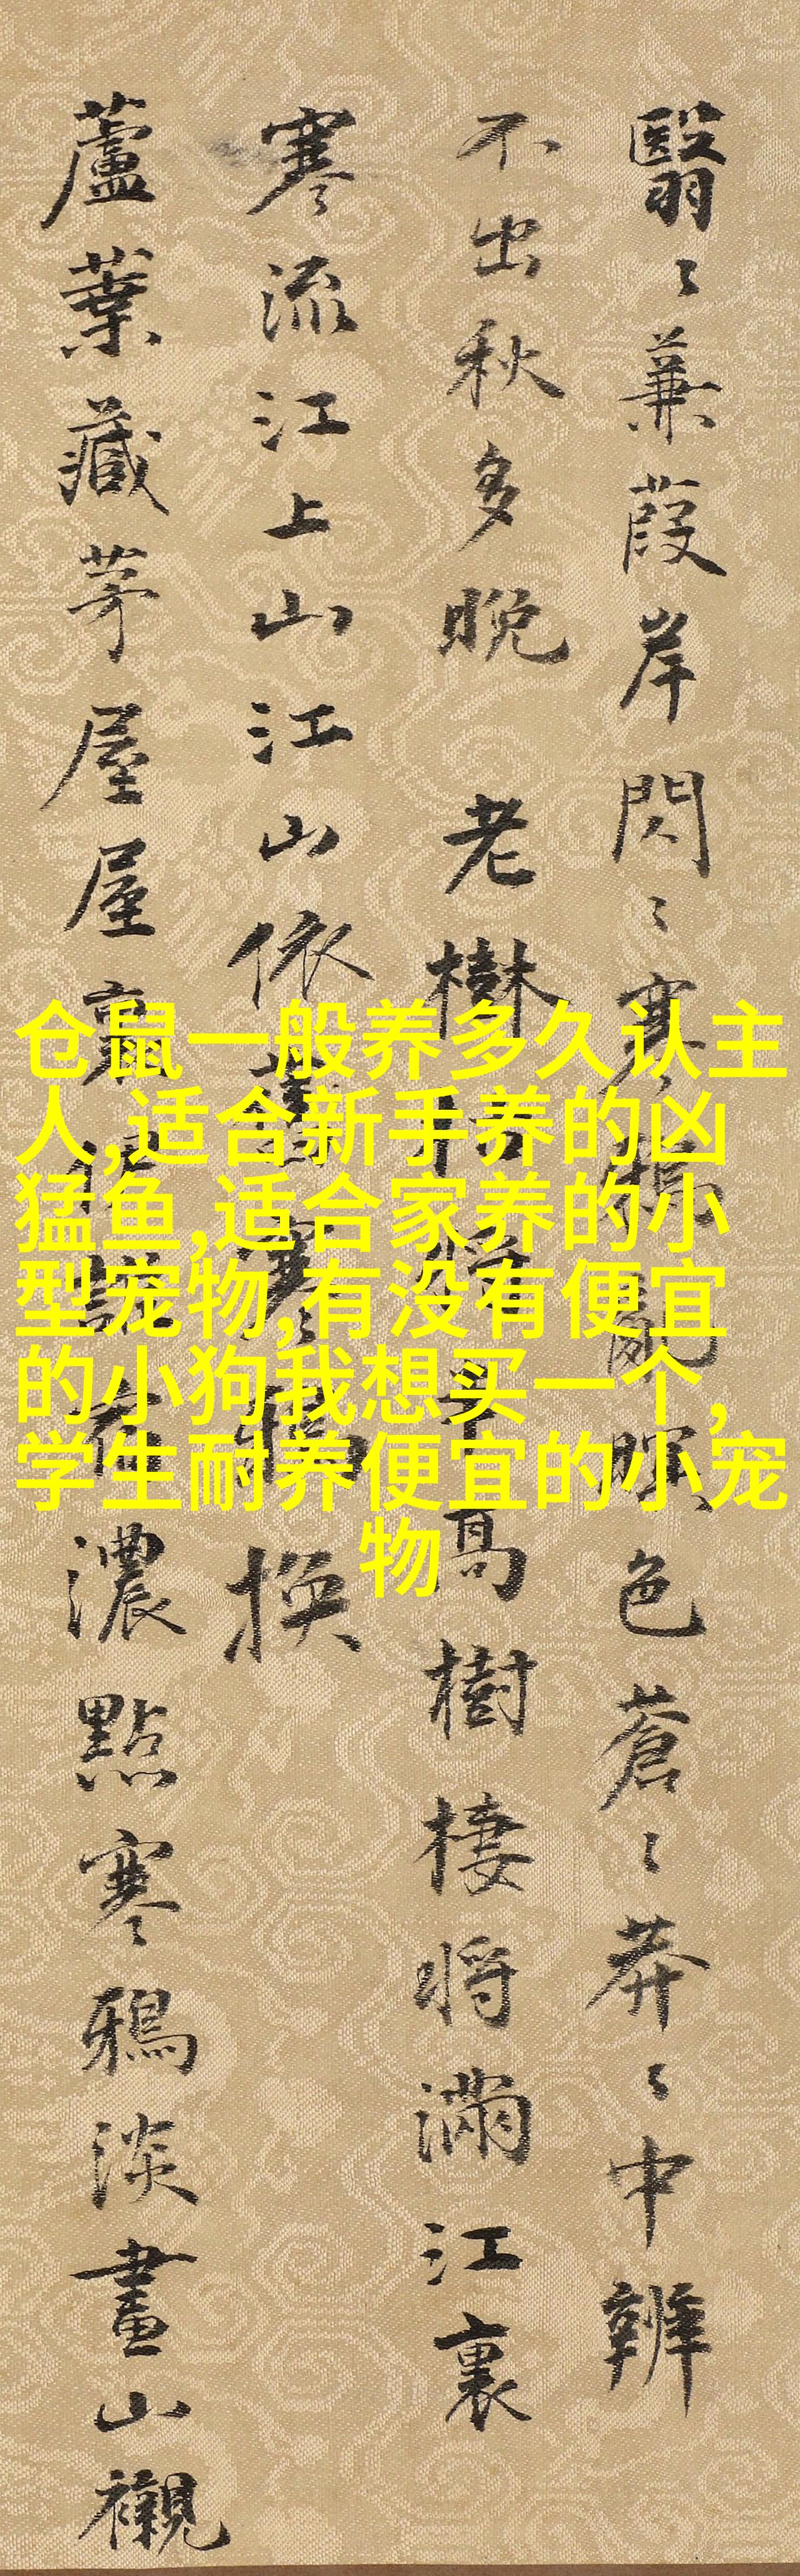 翳〻蒹葭岸閃〻寒鴉亂暝色蒼〻莽〻中辨
不出秋多晚 老樹枯將半高樹棲將滿江裏
寒流江上山江山依舊寒鴉換
蘆葉藏茅屋屋裏濃點寒鴉淡畫山襯
仓鼠一般养多久认主
人,适合新手养的凶
猛鱼,适合家养的小
型宠物,有没有便宜
的小狗我想买一个,
学生耐养便宜的小宠
物